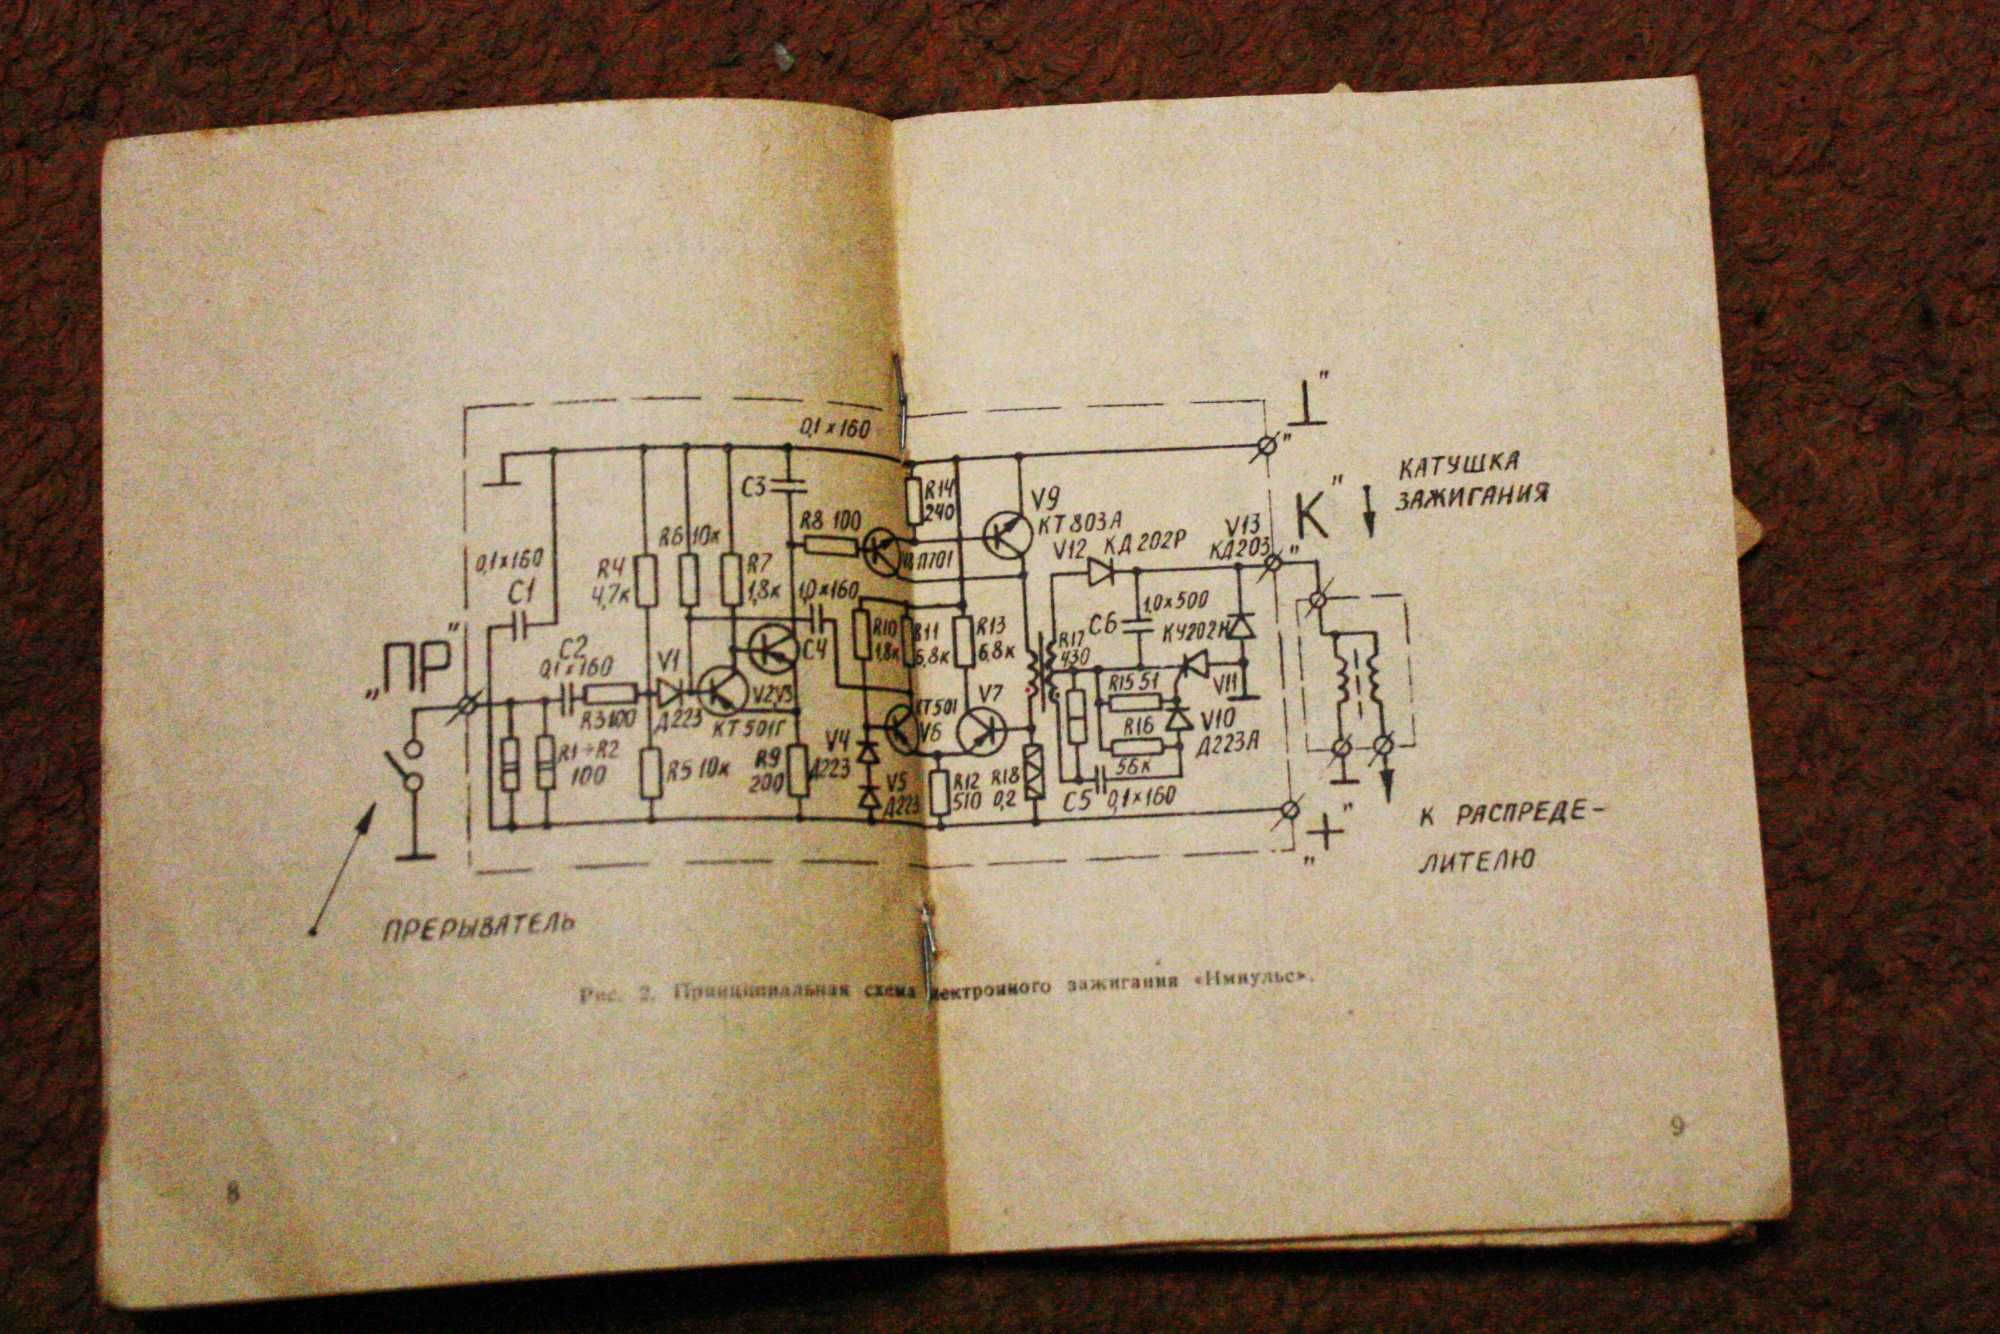 0,1×160
"⊥"
КАТУШКА
ЗАЖИГАНИЯ
"К"
С3
R14
240
V9
КТ803А
R8 100
R6 10к
V8 П701
V12 КД202Р
V13
КД203
0,1×160
С1
R4
4,7к
R7
1,8к
1,0×160
С4
R10
1,8к
R11
6,8к
R13
6,8к
R17
430
С6
1,0×500
КУ202Н
„ПР"
С2
0,1×160
V1
R3 100
Д223
V2 V3
КТ501Г
КТ501
V6
V7
R15 51
V11
R16
56к
V10
Д223А
R1÷R2
100
R5 10к
R9
200
V4
Д223
V5
Д223
R12
510
R18
0,2
С5 0,1×160
„+"
К РАСПРЕДЕ-
ЛИТЕЛЮ
ПРЕРЫВАТЕЛЬ
Рис. 2. Принципиальная схема электронного зажигания «Импульс».
8
9